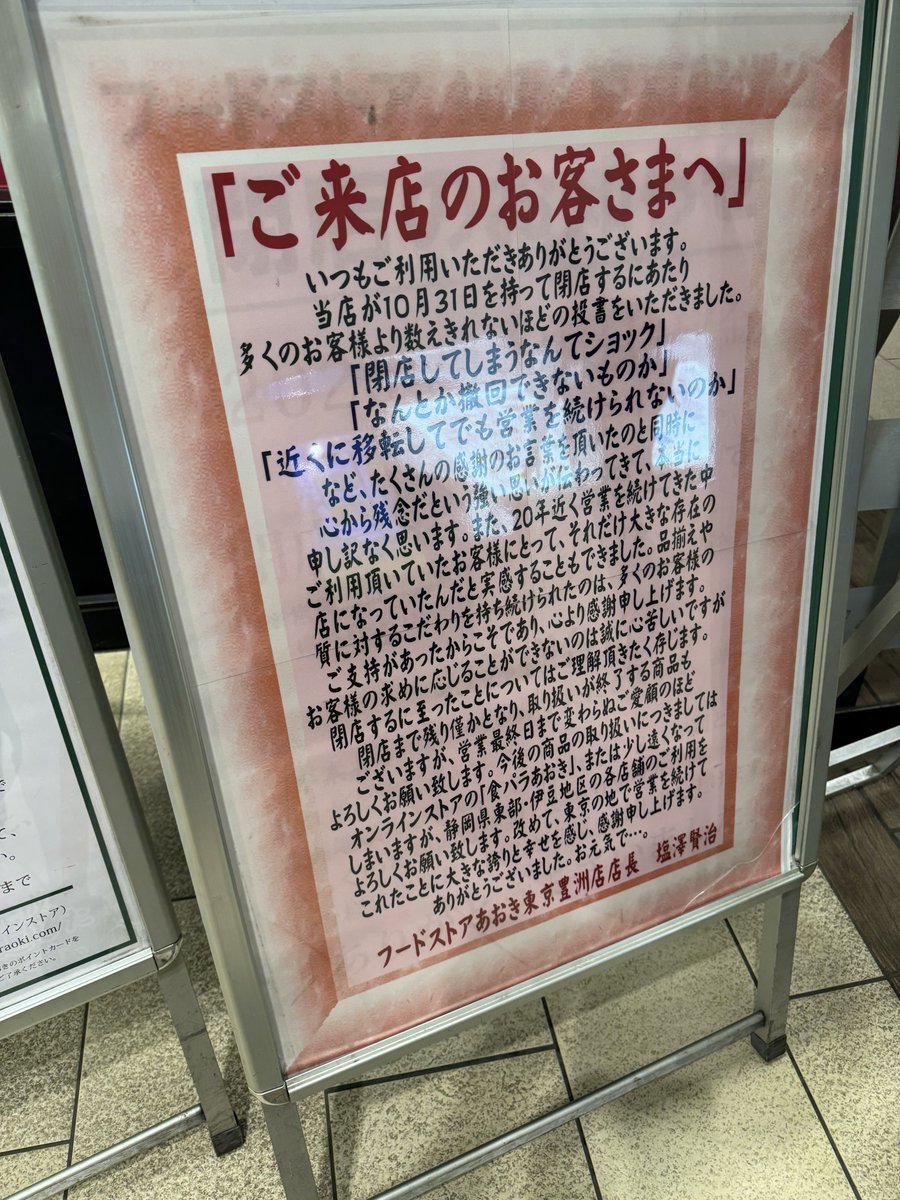 「ご来店のお客さまへ」
いつもご利用いただきありがとうございます。
当店が10月31日を持って閉店するにあたり
多くのお客様より数えきれないほどの投書をいただきました。
「閉店してしまうなんてショック」
「なんとか撤回できないものか」
「近くに移転してでも営業を続けられないのか」
など、たくさんの感謝のお言葉を頂いたのと同時に
心から残念だという強い思いが伝わってきて、本当に
申し訳なく思います。また、20年近く営業を続けてきた中
ご利用頂いていたお客様にとって、それだけ大きな存在の
店になっていたんだと実感することもできました。品揃えや
質に対するこだわりを持ち続けられたのは、多くのお客様の
ご支持があったからこそであり、心より感謝申し上げます。
お客様の求めに応じることができないのは誠に心苦しいですが
閉店するに至ったことについてはご理解頂きたく存じます。
閉店まで残り僅かとなり、取り扱いが終了する商品も
ございますが、営業最終日まで変わらぬご愛顧のほど
よろしくお願い致します。今後の商品の取り扱いにつきましては
オンラインストアの「食パラあおき」、または少し遠くなって
しまいますが、静岡県東部・伊豆地区の各店舗のご利用を
よろしくお願い致します。改めて、東京の地で営業を続けて
これたことに大きな誇りと幸せを感じ、感謝申し上げます。
ありがとうございました。お元気で…。
フードストアあおき東京豊洲店店長 塩澤賢治
で
て、
い。
まで
インストア)
raoki.com/
きのポイントカードを
ご了承ください。